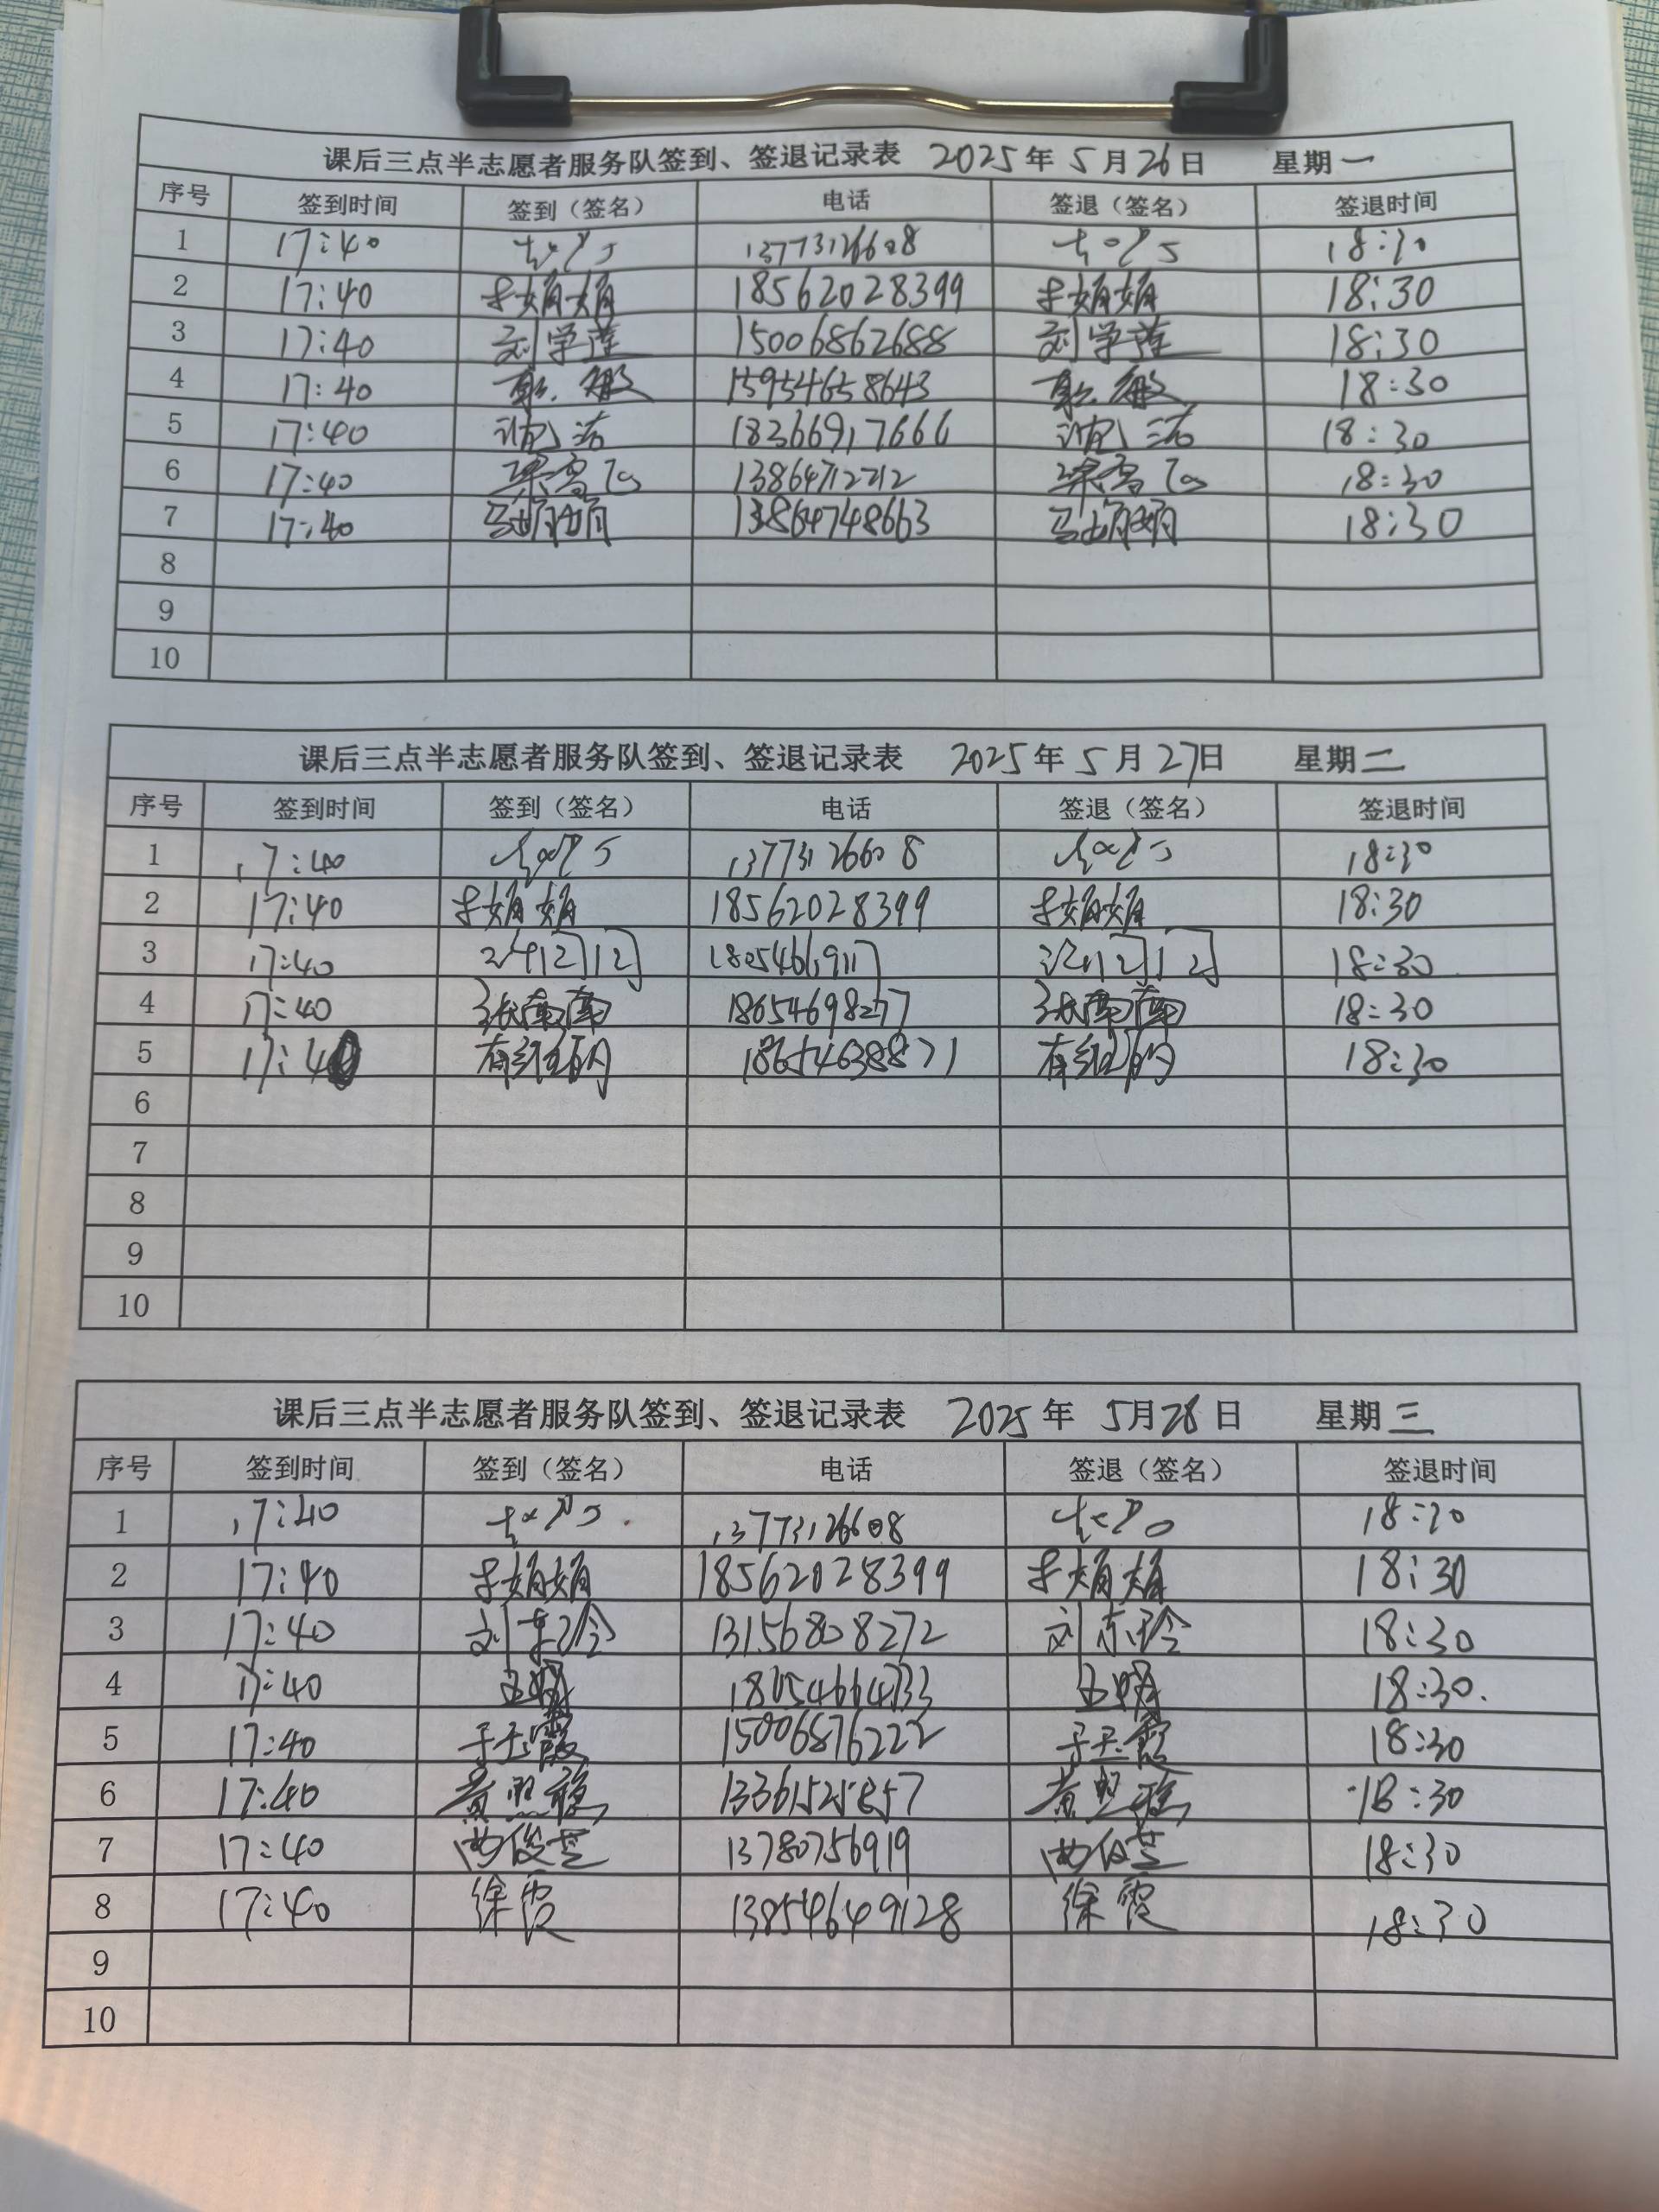 课后三点半志愿者服务队签到、签退记录表 2025年5月26日 星期一
序号 签到时间 签到（签名） 电话 签退（签名） 签退时间
1 17:40 13773126608 18:30
2 17:40 李娟娟 18562028399 李娟娟 18:30
3 17:40 刘学莲 15006862688 刘学莲 18:30
4 17:40 15954658643 18:30
5 17:40 18366917666 18:30
6 17:40 梁高飞 13864712712 梁高飞 18:30
7 17:40 马娟娟 13864748663 马娟娟 18:30
8
9
10
课后三点半志愿者服务队签到、签退记录表 2025年5月27日 星期二
序号 签到时间 签到（签名） 电话 签退（签名） 签退时间
1 17:40 13773126608 18:30
2 17:40 李娟娟 18562028399 李娟娟 18:30
3 17:40 18:30
4 17:40 张南南 18654698277 张南南 18:30
5 17:40 18654638871 18:30
6
7
8
9
10
课后三点半志愿者服务队签到、签退记录表 2025年5月28日 星期三
序号 签到时间 签到（签名） 电话 签退（签名） 签退时间
1 17:40 13773126608 18:30
2 17:40 李娟娟 18562028399 李娟娟 18:30
3 17:40 刘东玲 13156808272 刘东玲 18:30
4 17:40 18054664733 18:30
5 17:40 于玉霞 15006876222 于玉霞 18:30
6 17:40 黄照稳 13361525857 黄照稳 18:30
7 17:40 曲俊芝 13780756919 曲俊芝 18:30
8 17:40 徐霞 13854649128 徐霞 18:30
9
10